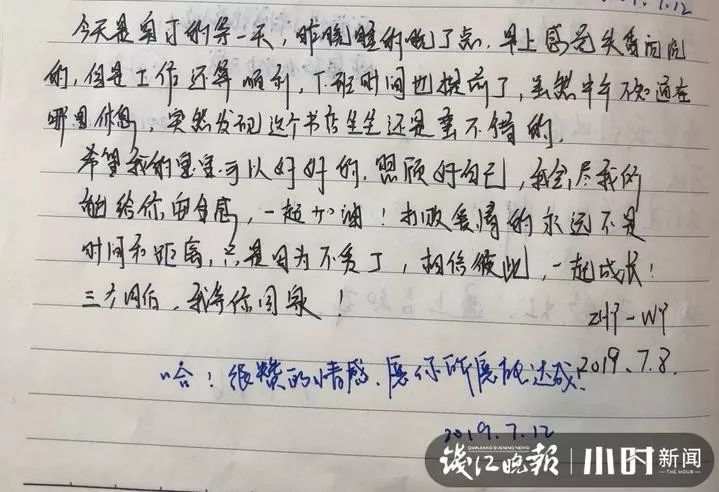 7.12
今天是自丁的第一天，昨晚睡的晚了点，早上感觉头昏沉沉
的，但是工作还算顺利，下班时间也提前了，虽然中午不知道在
哪里休息，突然发现这个书店坐坐还是蛮不错的。
希望我的宝宝可以好好的，照顾好自己，我会尽我所
能给你安全感，一起加油！打败爱情的永远不是
时间和距离，只是因为不爱了，相信彼此，一起成长！
三个月后，我等你回家！
ZHY-WY
2019.7.8.
哈！很赞的情感，愿你所愿都达成！
2019.7.12
钱江晚报
QIANJIANG EVENING NEWS
小时新闻
THE HOUR